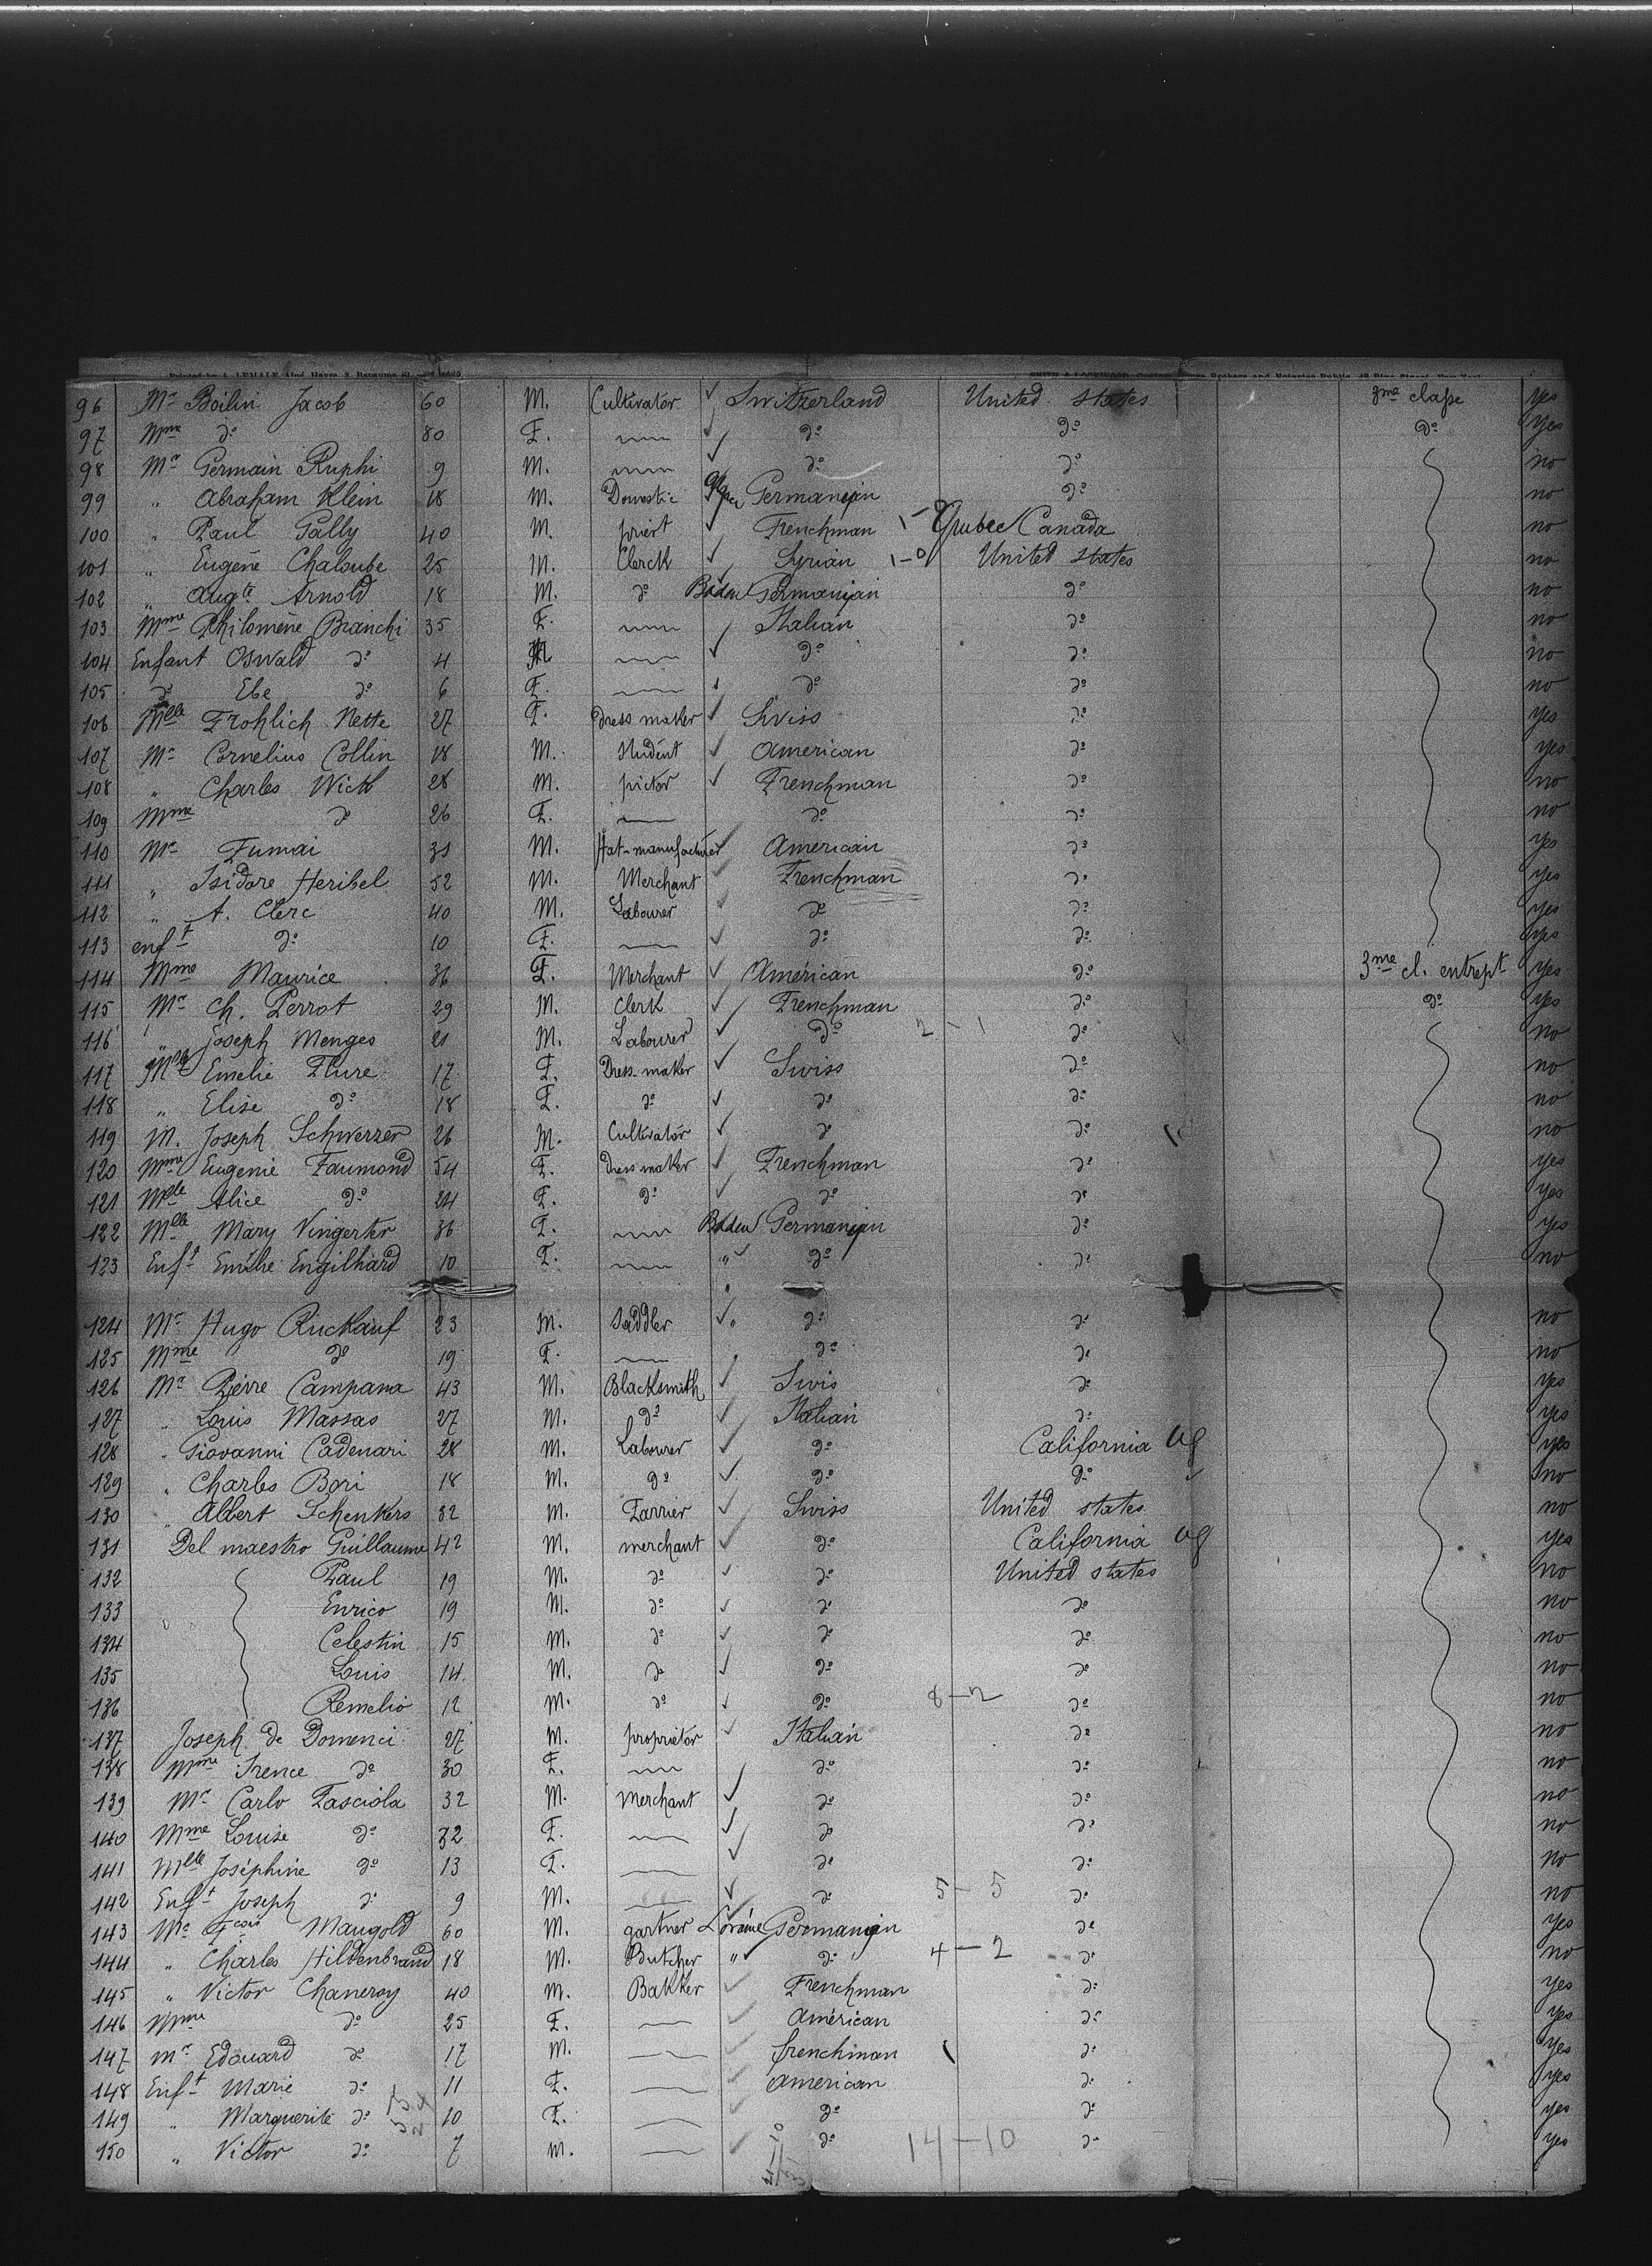 96 Mr Boilin Jacob 60 M. Cultivator Switzerland United states 3me classe yes
97 Mme do 80 F. do do do yes
98 Mr Germain Ruphi 9 M. do do no
99 " Abraham Klein 18 M. Domestic Germanyin do no
100 " Paul Gally 40 M. priest Frenchman 1-0 Quebec Canada no
101 " Eugène Chaloube 25 M. Clerck Syrian 1-0 United states no
102 " Augte Arnold 18 M. do Baden Germanyin do no
103 Mme Philomène Bianchi 35 F. Italian do no
104 Enfant Oswald do 4 M do do no
105 do Ebe do 6 F. do do no
106 Melle Frohlich Nette 27 F. dress maker Swiss do yes
107 Mr Cornelius Collin 18 M. Student American do yes
108 " Charles Wick 28 M. pictor Frenchman do no
109 Mme do 26 F. do do no
110 Mr Fumai 31 M. Hat-manufacturer American do yes
111 " Isidore Heribel 52 M. Merchant Frenchman do yes
112 " A. Clerc 40 M. Labourer do do yes
113 enft do 10 F. do do yes
114 Mme Maurice 36 F. Merchant Américan do 3me cl. entrept yes
115 Mr Ch. Perrot 29 M. Clerk Frenchman do do yes
116 " Joseph Menges 21 M. Labourer do 2-1 do no
117 Mlle Emelie Flure 17 F. Dress-maker Swiss do no
118 " Elise do 18 F. do do do no
119 M. Joseph Schwerzer 26 M. Cultivator do do no
120 Mme Eugenie Faumond 54 F. dress maker Frenchman do yes
121 Melle Alice do 24 F. do do do yes
122 Mlle Mary Vingerter 36 F. Baden Germanyin do yes
123 Enft Emélie Engilhard 10 F. " do do no
124 Mr Hugo Ruckauf 23 M. Saddler " do do no
125 Mme do 19 F. do do no
126 Mr Pierre Campana 43 M. Blacksmith Swis do yes
127 " Louis Massas 27 M. do Italian do yes
128 " Giovanni Cadenari 28 M. Labourer do California yes
129 " Charles Bori 18 M. do do do no
130 " Albert Schenkers 32 M. Farrier Swiss United states no
131 Del maestro Guillaume 42 M. merchant do California yes
132 Paul 19 M. do do United states no
133 Enrico 19 M. do do do no
134 Celestin 15 M. do do do no
135 Louis 14 M. do do do no
136 Remelio 12 M. do do 8-2 do no
137 Joseph de Domenci 27 M. proprietor Italian do no
138 Mme Irence do 30 F. do do no
139 Mr Carlo Fasciola 32 M. Merchant do do no
140 Mme Louise do 32 F. do do no
141 Melle Joséphine do 13 F. do do no
142 Enft Joseph do 9 M. do 5-5 do no
143 Mr Fcois Maugold 60 M. gartner Loraine Germanyin do yes
144 " Charles Hildenbrand 18 M. Butcher " do 4-2 do no
145 " Victor Chaneroy 40 M. Bakker Frenchman do yes
146 Mme do 25 F. Américan do yes
147 Mr Edouard do 17 M. frenchman do yes
148 Enft Marie do 11 F. American do yes
149 " Marguerite do 10 F. do do yes
150 " Victor do 7 M. do 14-10 do yes